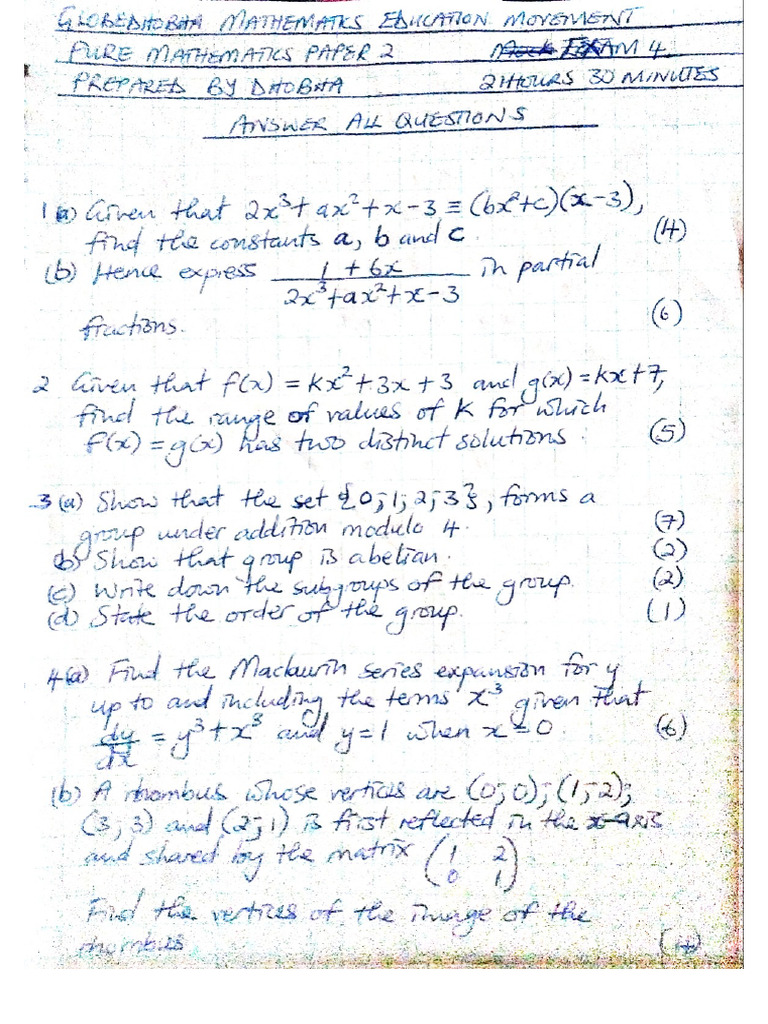 GLOBEDHOBHA MATHEMATICS EDUCATION MOVEMENT
PURE MATHEMATICS PAPER 2 EXAM 4
PREPARED BY DHOBHA 2 HOURS 30 MINUTES
ANSWER ALL QUESTIONS
1 (a) Given that 2x³ + ax² + x - 3 ≡ (bx² + c)(x - 3),
find the constants a, b and c. (4)
(b) Hence express (1 + 6x)/(2x³ + ax² + x - 3) in partial
fractions. (6)
2 Given that f(x) = kx² + 3x + 3 and g(x) = kx + 7,
find the range of values of k for which
f(x) = g(x) has two distinct solutions. (5)
3 (a) Show that the set {0; 1; 2; 3}, forms a
group under addition modulo 4. (7)
(b) Show that group is abelian. (2)
(c) Write down the subgroups of the group. (2)
(d) State the order of the group. (1)
4 (a) Find the Maclaurin series expansion for y
up to and including the terms x³ given that
dy/dx = y³ + x³ and y = 1 when x = 0. (6)
(b) A rhombus whose vertices are (0; 0); (1; 2);
(3; 3) and (2; 1) is first reflected in the x-axis
and shared by the matrix (1 2
0 1)
Find the vertices of the image of the
rhombus (4)